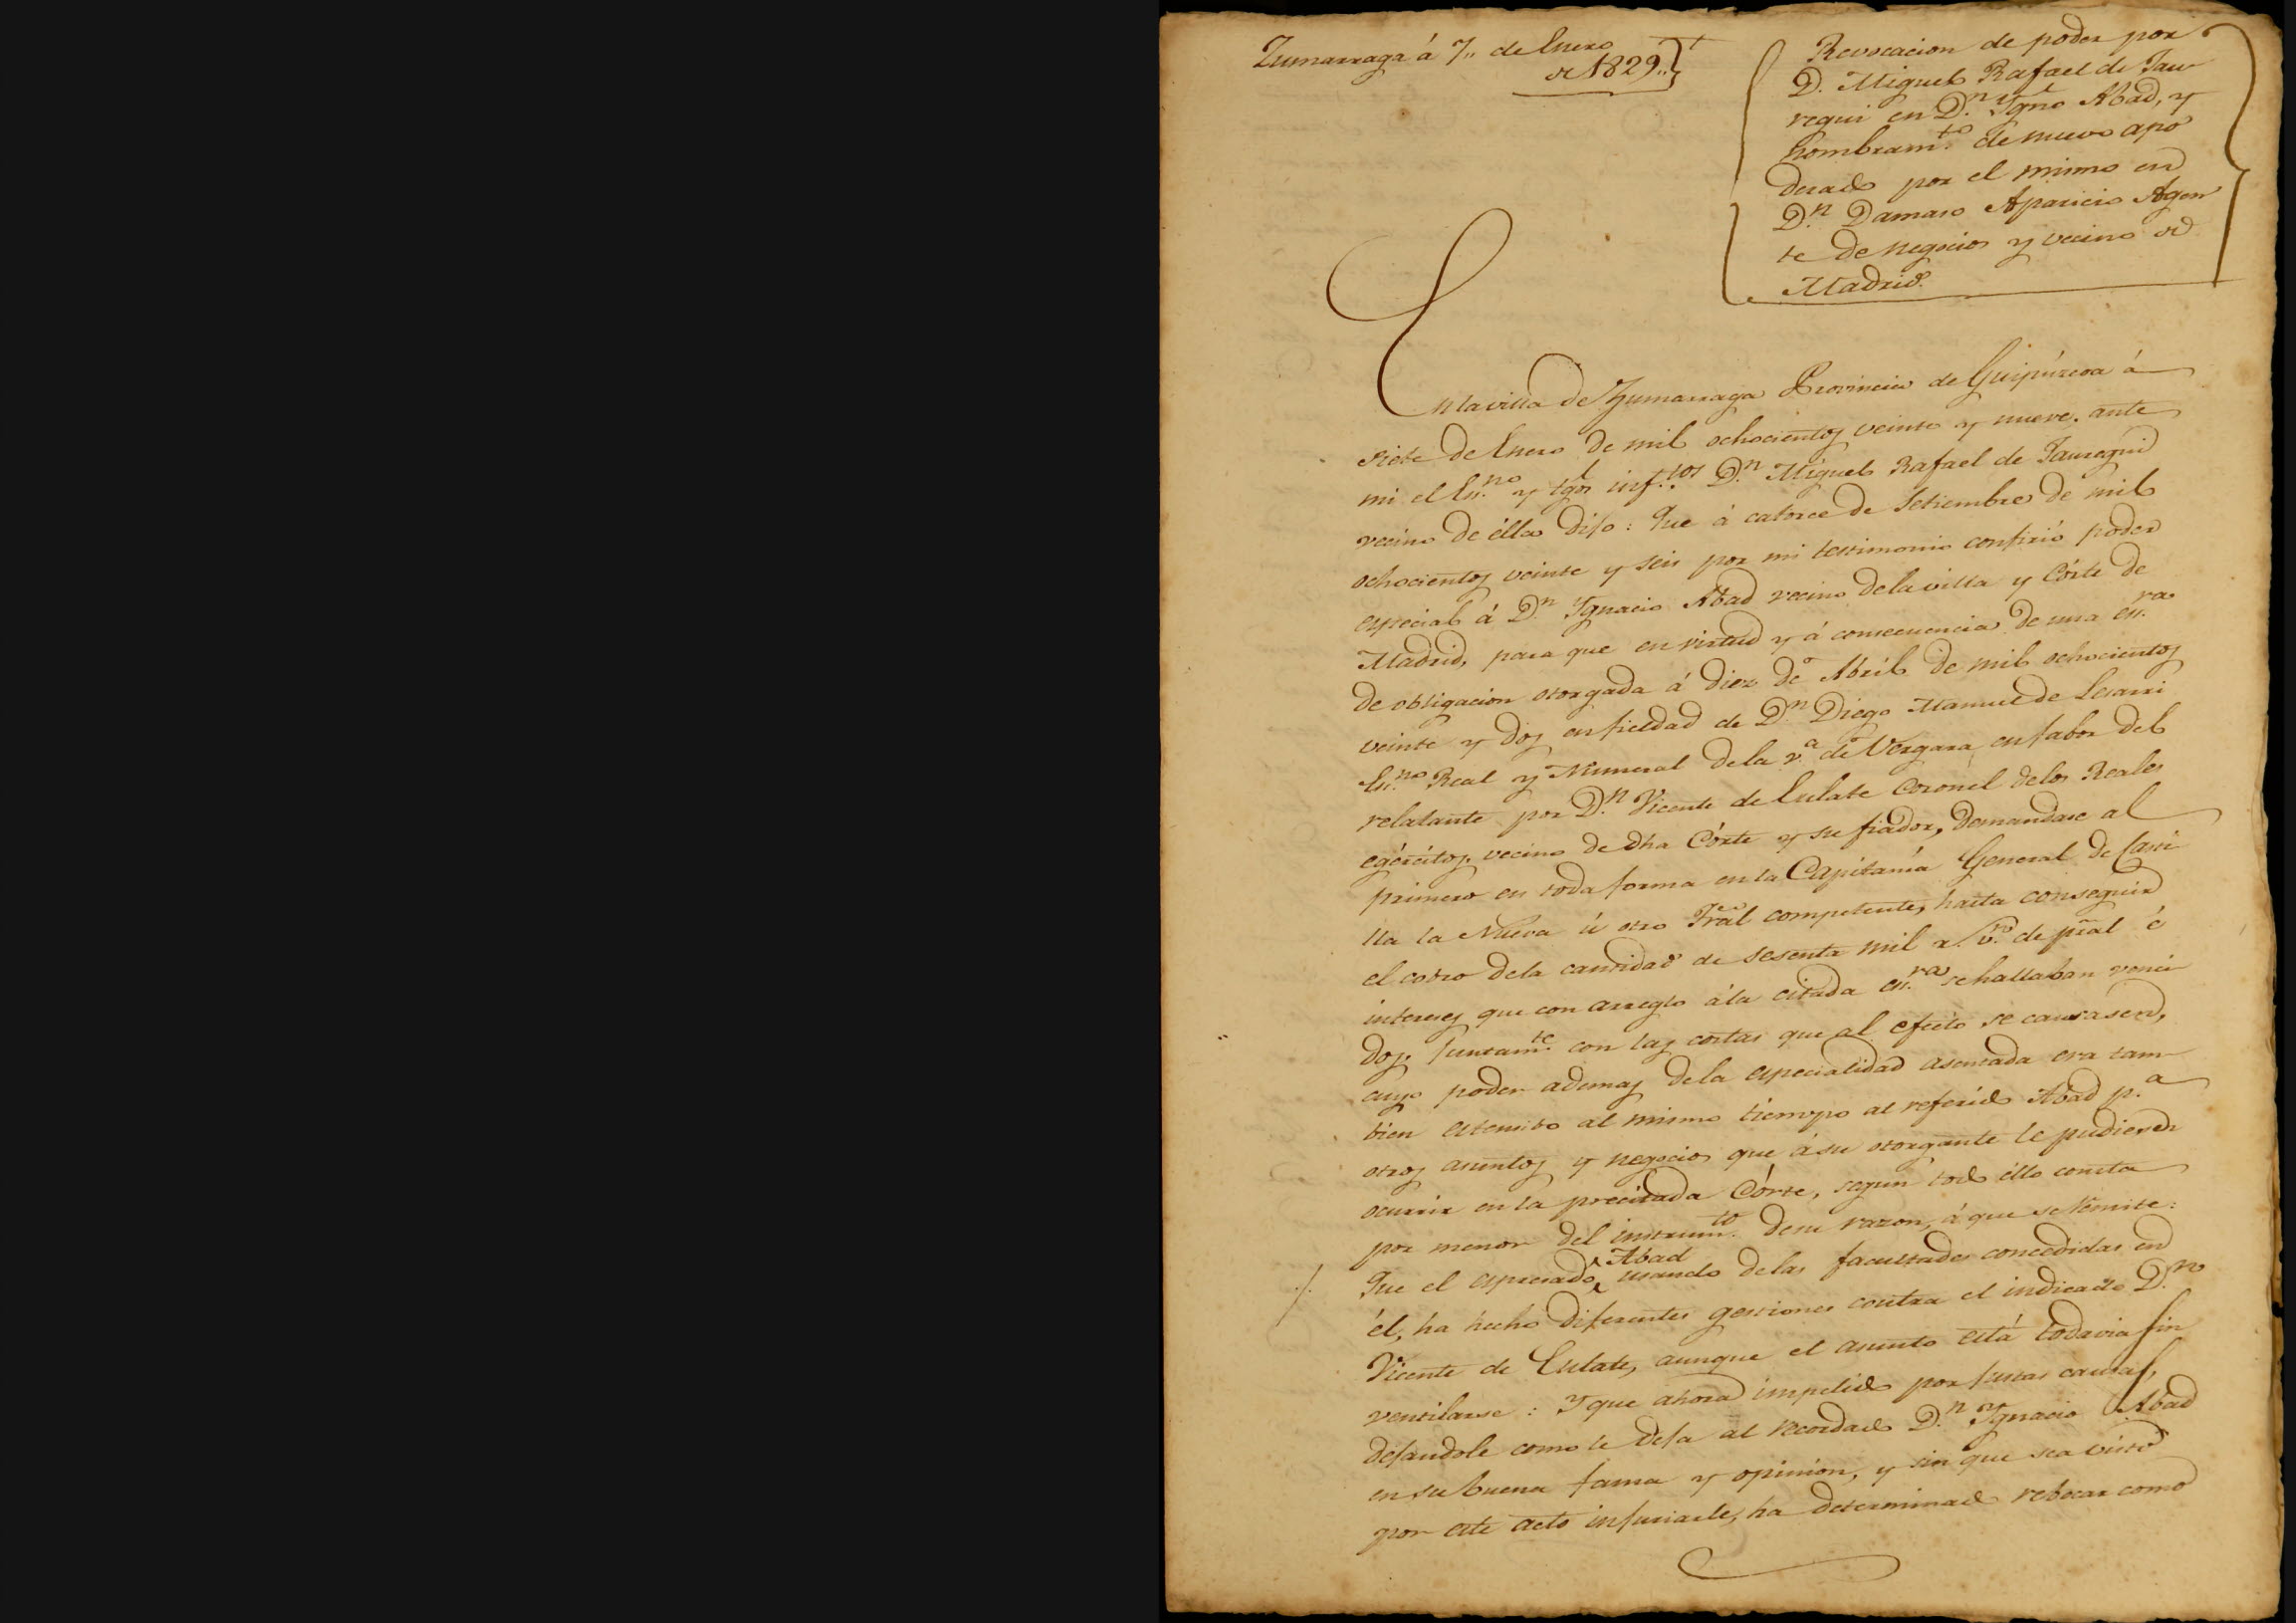 Zumarraga á 7,, de Enero
de 1829,,
Revocacion de poder por
D. Miguel Rafael de Jau
regui en D.n Ygno Abad, y
nombram.to de nuevo apo
derado por el mismo en
D.n Damaso Aparicio Agen
te de negocios y vecino de
Madrid.
En la villa de Zumarraga Provincia de Guipúzcoa á
siete de Enero de mil ochocientos veinte y nueve, ante
mi el Es.no y tgos inf.tos D.n Miguel Rafael de Jauregui
vecino de élla dijo: Que á catorce de Setiembre de mil
ochocientos veinte y seis por mi testimonio confirió poder
especial á D.n Ygnacio Abad vecino de la villa y Córte de
Madrid, para que en virtud y á consecuencia de una es.ra
de obligacion otorgada á diez de Abril de mil ochocientos
veinte y dos en fieldad de D.n Diego Manuel de Lesarri
Es.no Real y Numeral de la v.a de Vergara, en fabor del
relatante por D.n Vicente de Eulate Coronel de los Reales
egércitos, vecino de dha Córte y su fiador, demandase al
primero en toda forma en la Capitanía General de Casti
lla la Nueva ú otro Trãl competente, hasta conseguir
el cobro de la cantidad de sesenta mil r.s v.n de pr̃al é
intereses que con arreglo á la citada es.ra se hallaban venci
dos, juntam.te con las costas que al efecto se causasen,
cuyo poder ademas de la especialidad asentada era tam
bien estensivo al mismo tiempo al referido Abad p.a
otros asuntos y negocios que á su otorgante le pudieren
ocurrir en la precitada Córte, segun todo éllo consta
por menor del instrum.to de su razon, á que se remite:
Que el espresado Abad usando de las facultades concedidas en
él, ha hecho diferentes gestiones contra el indicado D.n
Vicente de Eulate, aunque el asunto está todavia sin
ventilarse: Y que ahora impelido por justas causas,
dejandole como le deja al recordado D.n Ygnacio Abad
en su buena fama y opinion, y sin que sea visto
por este acto injuriarle, ha determinado rebocar como